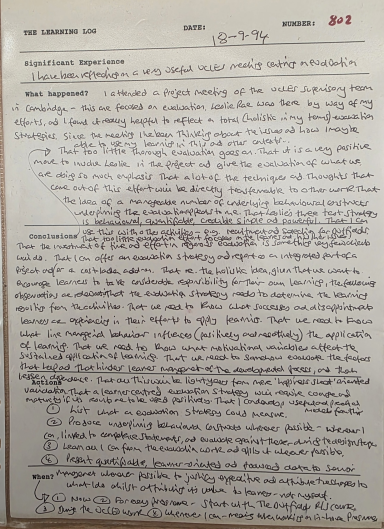 THE LEARNING LOG DATE: 18-9-94 NUMBER: 802
Significant Experience
I have been reflecting on a very useful UCLES meeting centring on evaluation
What happened? I attended a project meeting of the UCLES supervisory team
in Cambridge - this are focused on evaluation. Leslie Rae was there by way of my
efforts, and I found it really helpful to reflect on a total (holistic in my terms) evaluation
strategy. Since the meeting I've been thinking about the issues and how I may be
able to use my learning in this and other contexts.
That too little thorough evaluation goes on. That it is a very positive
move to involve Leslie in the project and give the evaluation of what we
are doing so much emphasis. That a lot of the techniques and thoughts that
come out of this effort will be directly transferable to other work. That
the idea of a manageable number of underlying behavioural constructs
underpinning the evaluation appeals to me. That Leslie's three test strategy
is behavioural, quantifiable, credible, simple and powerful. That I can
Conclusions use this with other activities - e.g.
That the investment of time and effort in rigorous evaluation is something very few
do. That I can offer an evaluation strategy and report as an integrated part of a
project and/or a cost-laden add-on. That re. the holistic idea, given that we want to
encourage learners to take considerable responsibility for their own learning, the following
observations are relevant: that the evaluation strategy needs to determine the learning
resulting from the activities. That we need to know what successes and disappointments
learners are experiencing in their efforts to apply learning. That we need to know
what line managerial behaviour influences (positively and negatively) the application
of learning. That we need to know what motivational variables affect the
sustained application of learning. That we need to somehow evaluate the factors
that help and that hinder learner management of the developmental process, and that
lessen dependence. That all this would be light years from mere 'happiness sheet' oriented
validation. That a learner-centred evaluation strategy will require courage and
maturity if its results are to be used positively. That I
Actions
① List what an evaluation strategy could measure.
② Produce underlying behavioural constructs wherever possible - wherever I
can, linked to competence statements, and evaluate against these
③ Learn all I can from the evaluation work and apply it wherever possible.
④ Present quantifiable, learner-oriented and powerful data to senior
management wherever possible to justify expenditure and attribute successes to
what I do whilst attributing its value to learners - not myself.
When? ① Now ② For every programme - start with the
③ During the UCLES work ④ Wherever I can